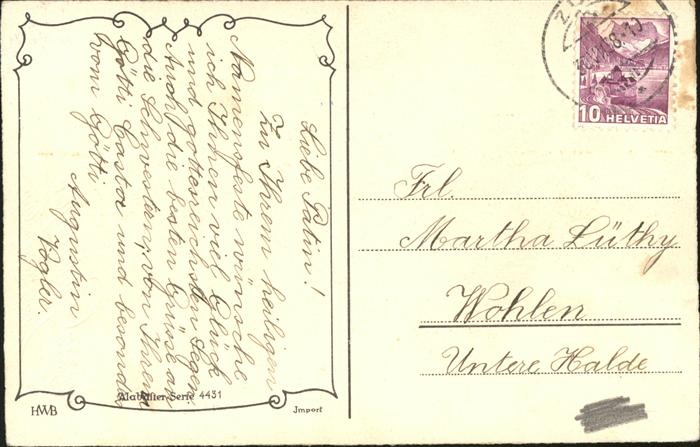 Liebe Patin!
Zu Ihrem heiligen
Namensfeste wünsche
ich Ihnen viel Glück
und gottesreich den Segen.
Auch die besten Grüsse an
die Schwestern, von Ihrem
Götti Castor und besonders
vom Götti
Augustin
Vogler.
HWB
Alabaster-Serie 4431
Import
10 HELVETIA
Frl.
Martha Lüthy
Wohlen
Untere Halde